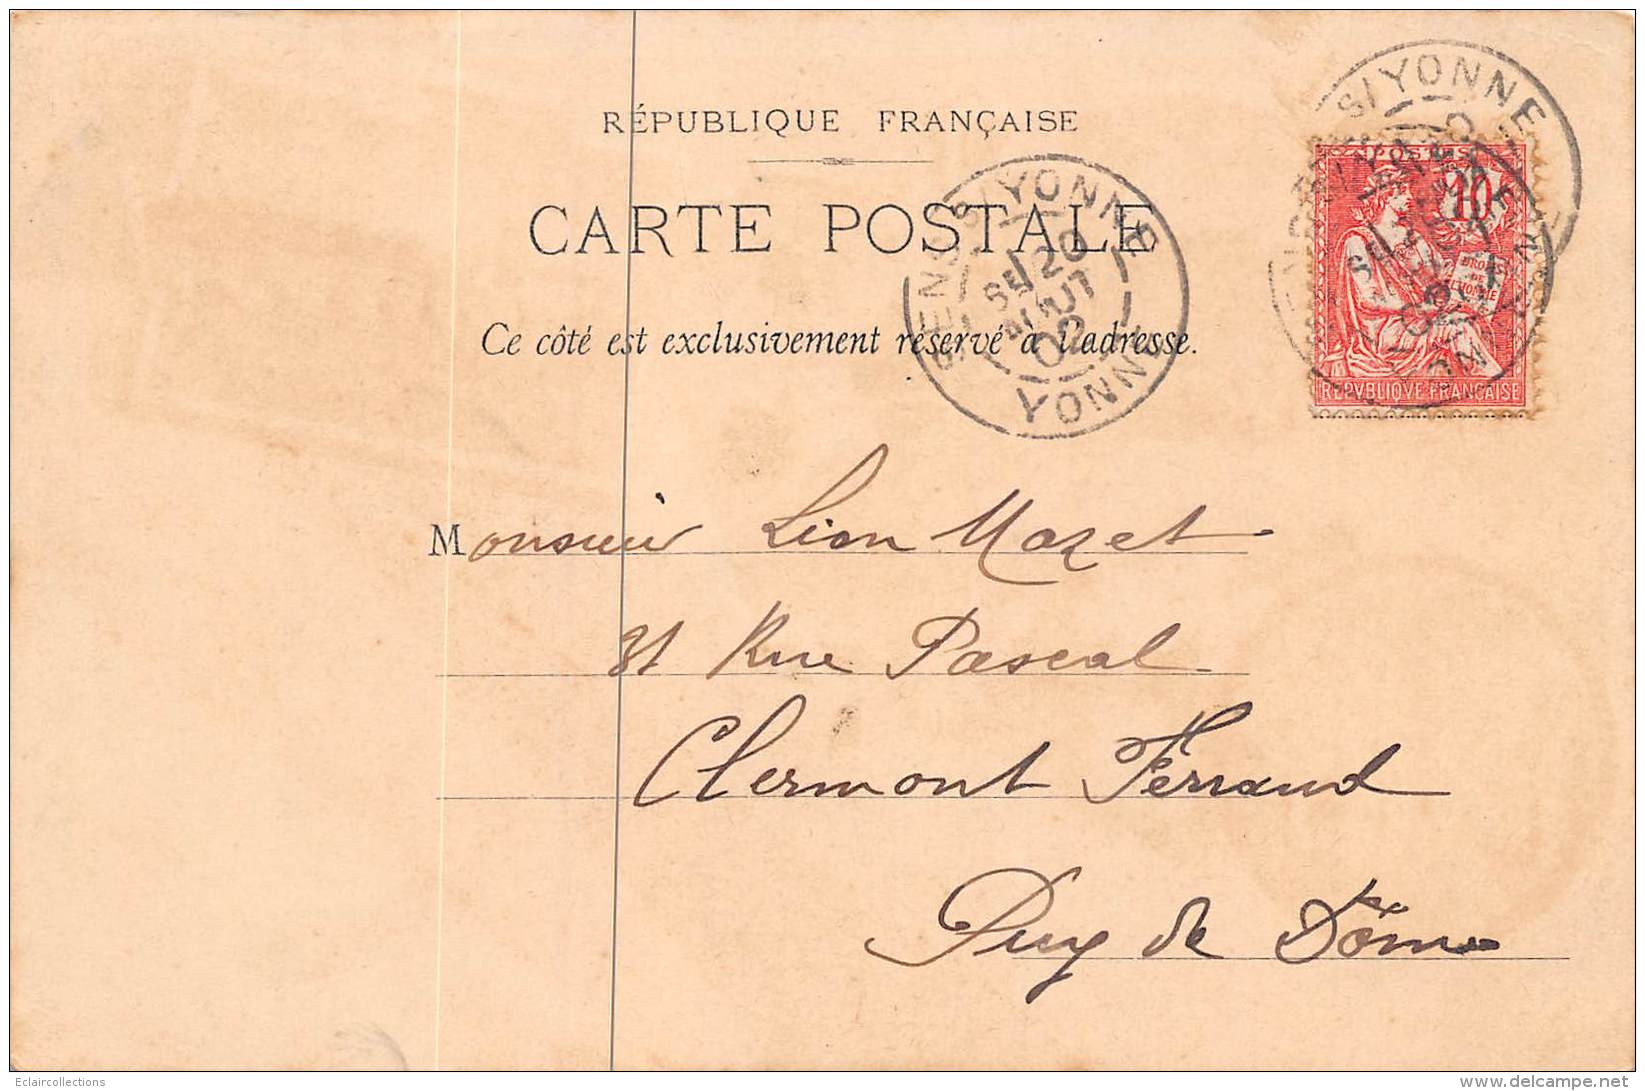 RÉPUBLIQUE FRANÇAISE
CARTE POSTALE
Ce côté est exclusivement réservé à l'adresse.
SENS S/YONNE
20
AOUT
02
YONNE
S/YONNE
POSTES
10
REPVBLIQVE FRANÇAISE
Monsieur Léon Mazet
31 Rue Pascal
Clermont Ferrand
Puy de Dôme
Eclaircollections
www.delcampe.net